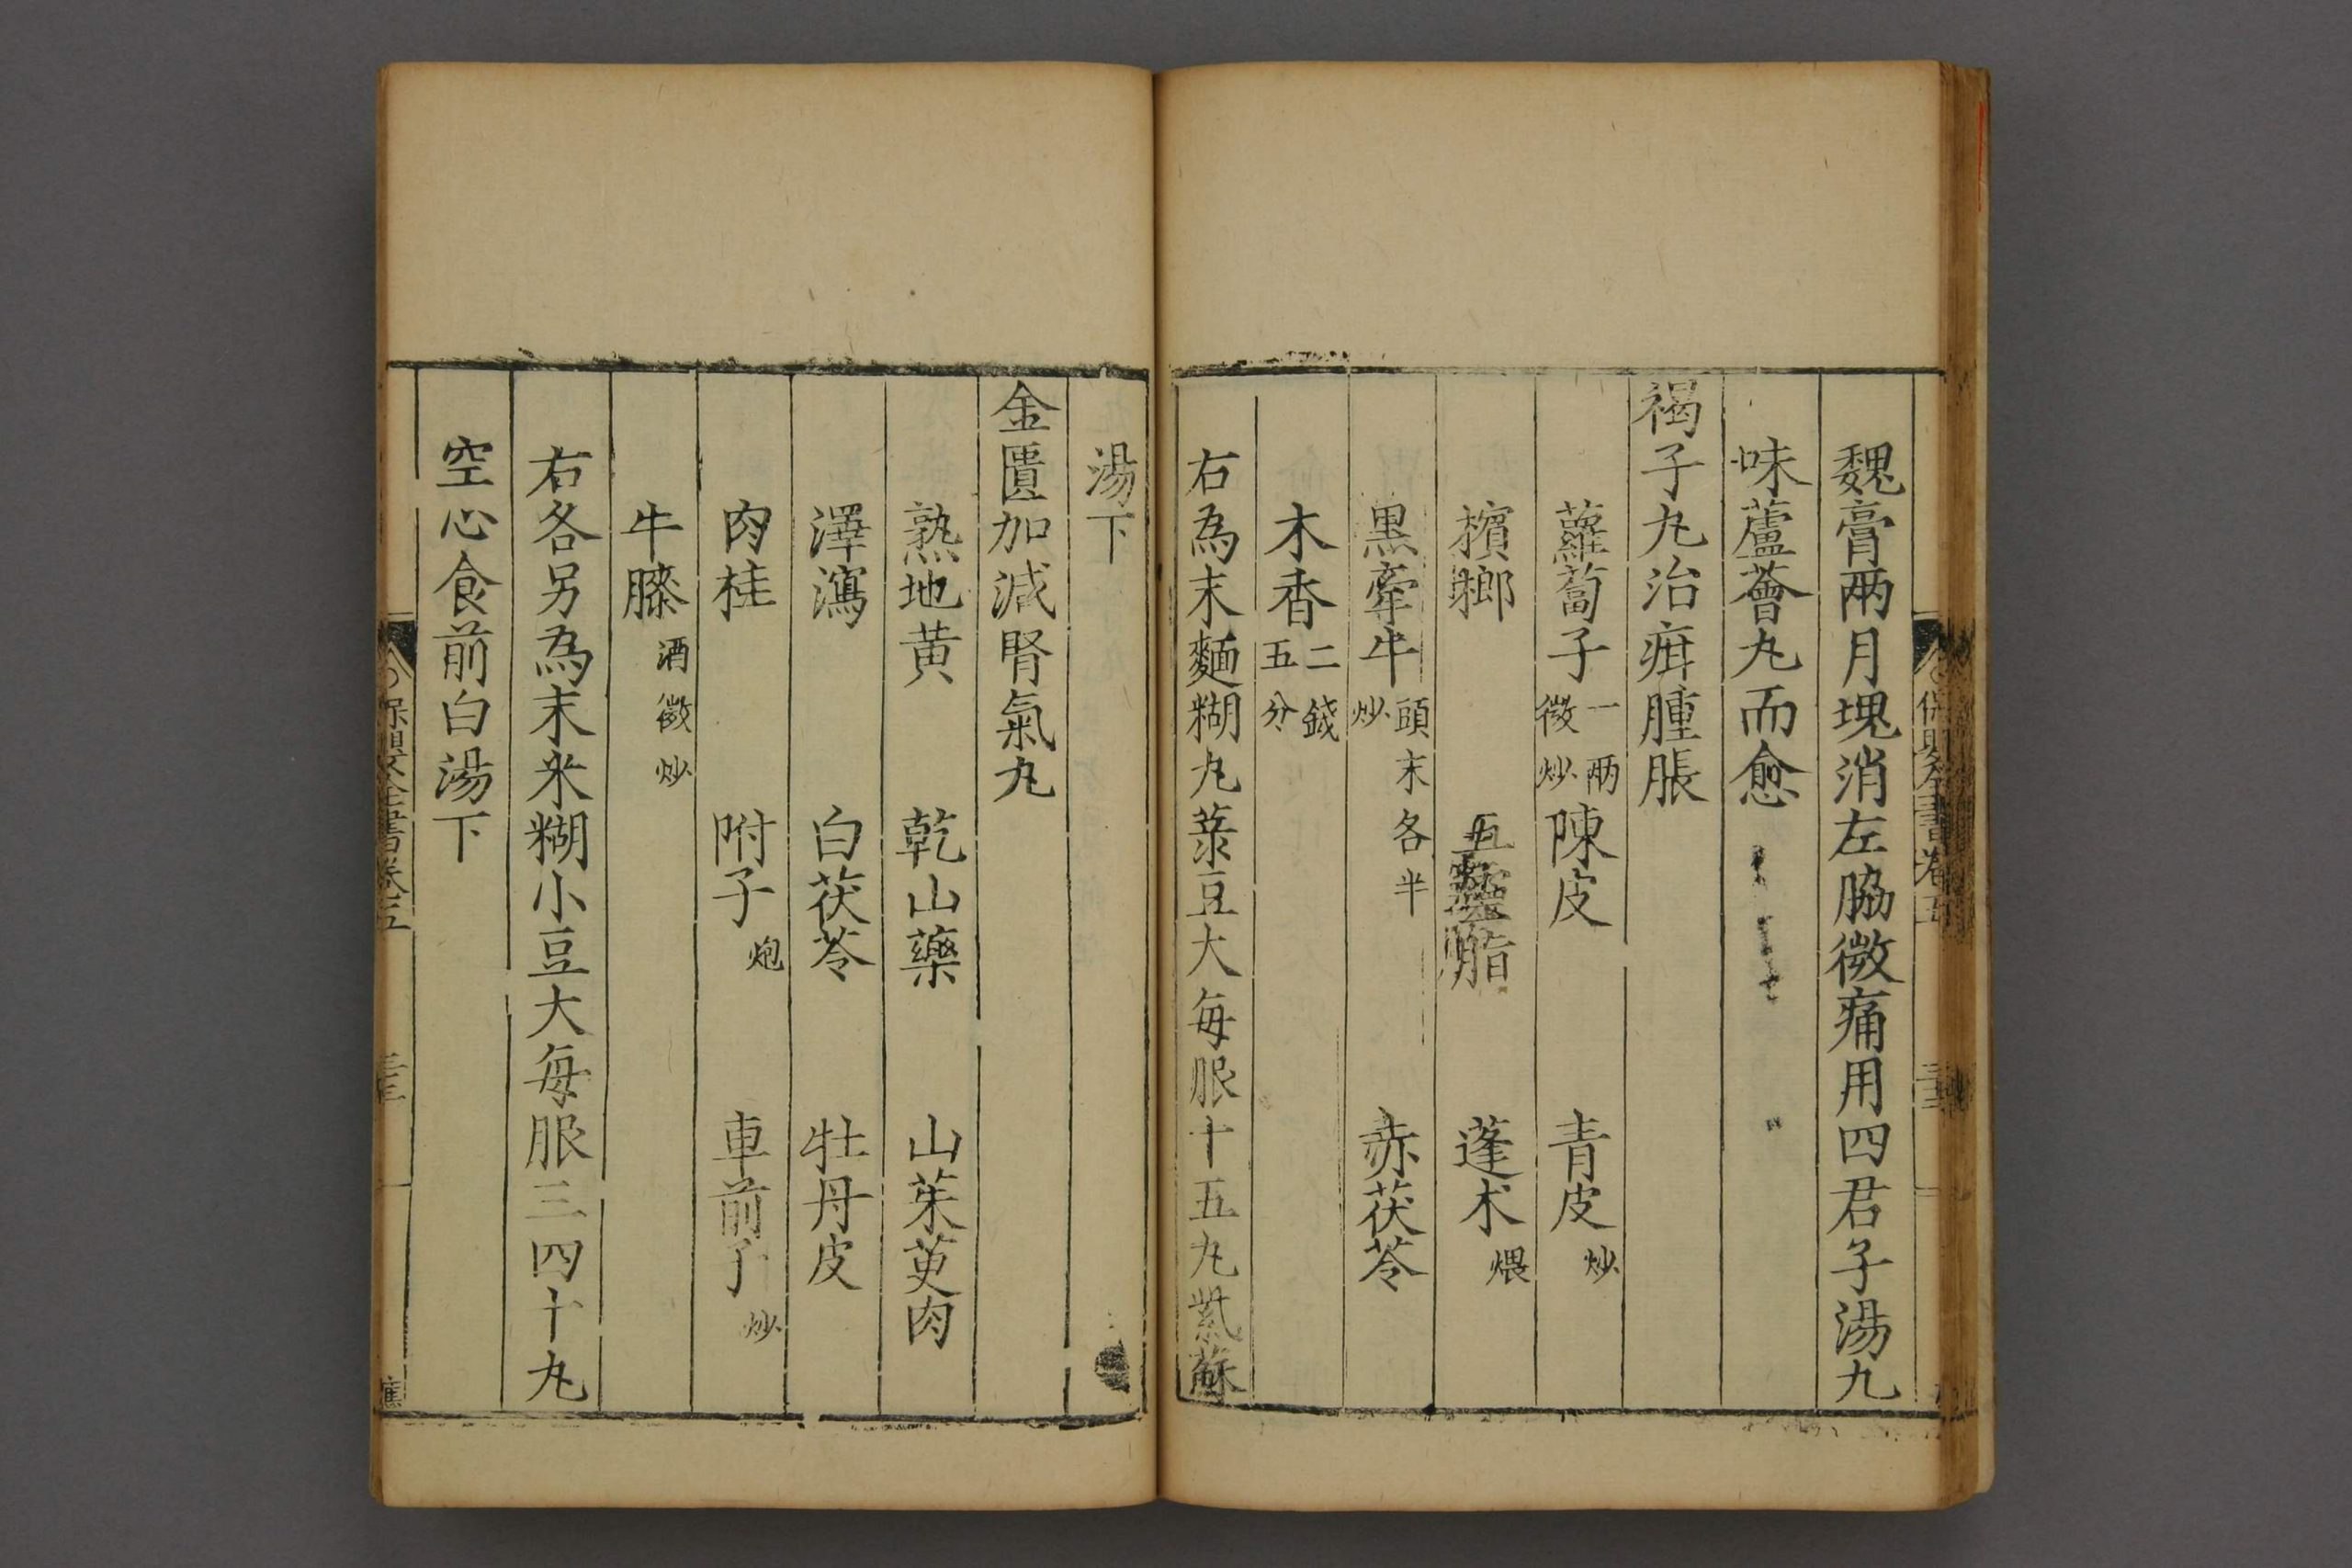 魏膏兩月塊消左脇微痛用四君子湯九
味蘆薈丸而愈
褐子丸治疳腫脹
蘿蔔子一兩微炒 陳皮 青皮炒
檳榔 五靈脂 蓬朮煨
黒牽牛頭末各半炒 赤茯苓
木香二錢五分
右為末麵糊丸菉豆大每服十五丸紫蘇
湯下
金匱加減腎氣丸
熟地黄 乾山藥 山茱萸肉
澤瀉 白茯苓 牡丹皮
肉桂 附子炮 車前子炒
牛膝酒微炒
右各另為末米糊小豆大每服三四十丸
空心食前白湯下